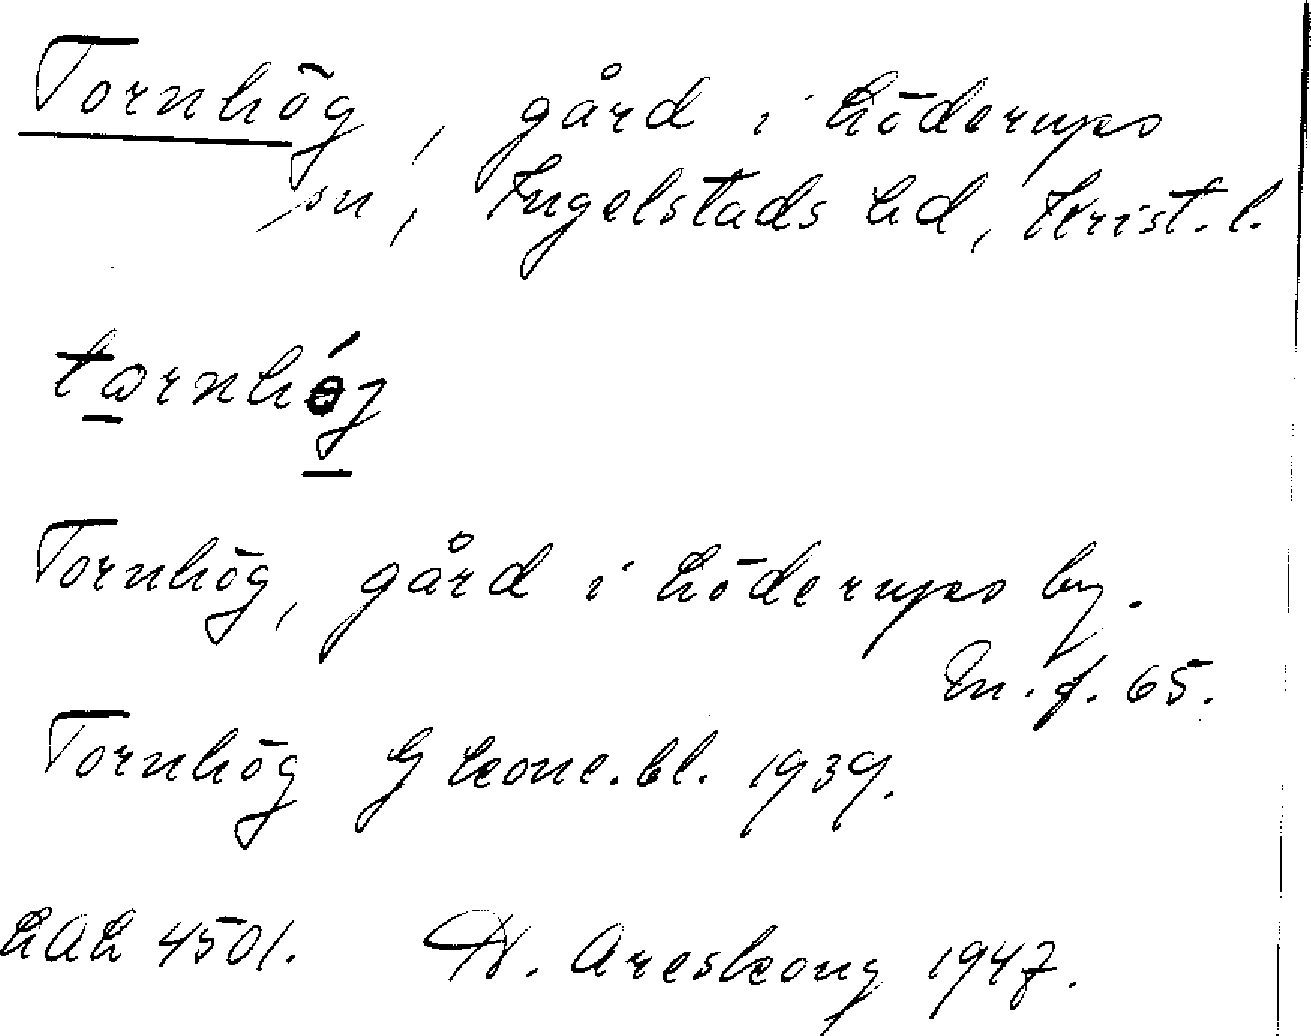 Tornhög, gård i Löderups
sn, Ingelstads hd, Krist. l.
tornhög
Tornhög, gård i Löderups by.
M. f. 65.
Tornhög G konc.bl. 1939.
LAL 4501. N. Areskoug 1947.